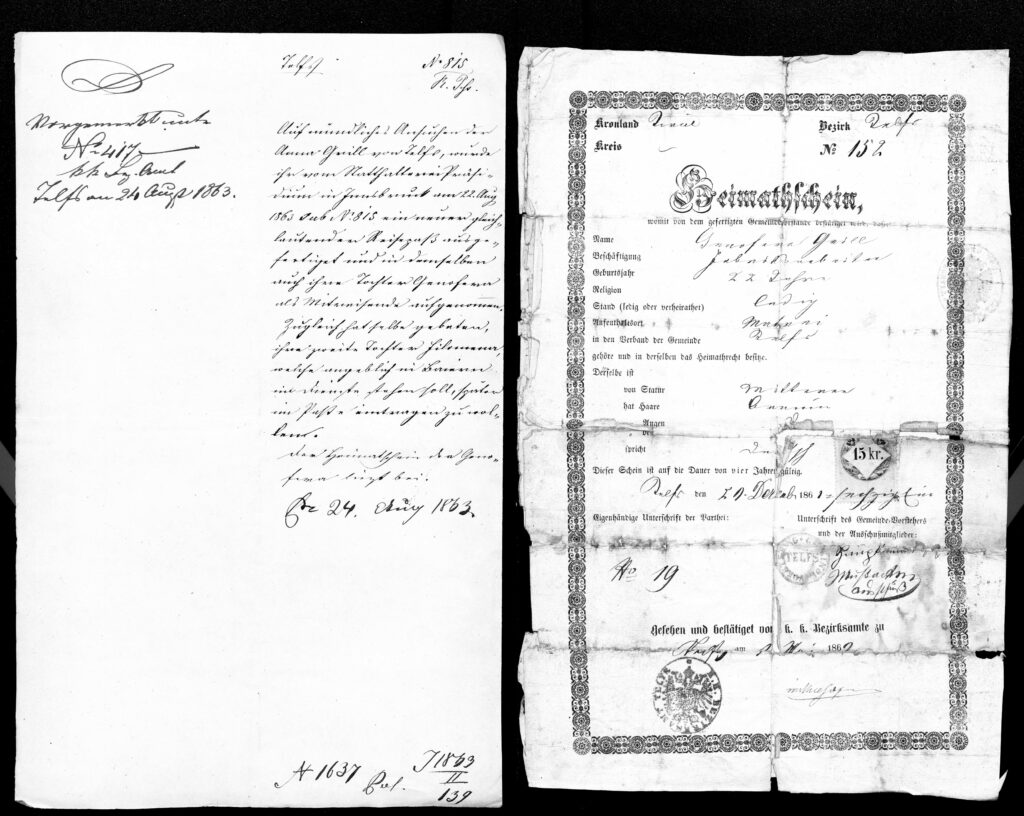 Telfs
No 815
N. Phr.
Vorgemerkt unte
No 417
kk Bez. Amt
Telfs am 24 Augst 1863.
Auf mündliches Ansuchen der
Anna Grill von Telfs, wurde
ihr vom Statthaltereipräsi-
dium in Innsbruck am 22. Aug
1863 sub. No 815 ein neuer gleich-
lautender Reisepaß ausge-
fertiget und in demselben
auch ihre Tochter Genofeva
als Mitreisende aufgenommen.
Zugleich hat selbe gebeten,
ihre zweite Tochter Filomena,
welche angeblich in Baiern
im Dienste stehen soll, später
im Paße eintragen zu wol-
len.
Der Heimatschein der Geno-
feva liegt bei.
24. Aug 1863.
N 1637
Pol.
1863
II
139
Kronland Tirol
Bezirk Telfs
Kreis
No 152
Heimathschein,
womit von dem gefertigten Gemeindevorstande bestätiget wird, daß
Name Genofeva Grill
Beschäftigung Fabriksarbeiterin
Geburtsjahr 22 Jahre
Religion
Stand (ledig oder verheirathet) Ledig
Aufenthaltsort
in den Verband der Gemeinde Telfs
gehöre und in derselben das Heimathrecht besitze.
Derselbe ist
von Statur Mittlerer
hat Haare Braun
Augen
spricht Deutsch
15 kr.
Dieser Schein ist auf die Dauer von vier Jahren gültig.
Telfs den 29. Dezemb. 1861 sechzig Ein
Eigenhändige Unterschrift der Parthei:
Unterschrift des Gemeinde-Vorstehers
und der Ausschußmitglieder:
TELFS
Ausschuß
No 19
Gesehen und bestätiget vom k. k. Bezirksamte zu
Telfs am 2 Mai 1862